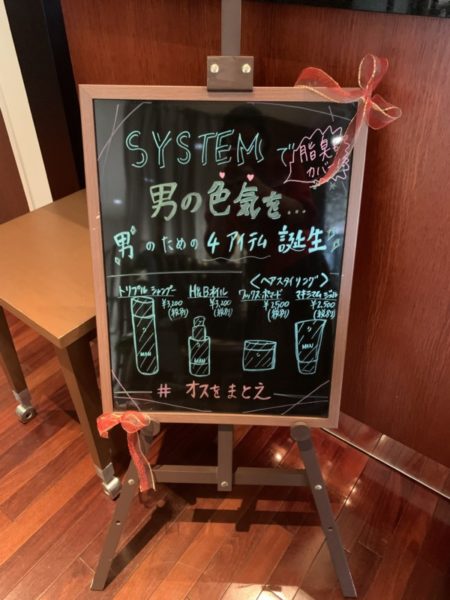 SYSTEM で
脂臭を
カバー
男の色気を...
"男"のための4アイテム誕生
<ヘアスタイリング>
トリプル シャンプー
¥3,200
(税別)
H&Bオイル
¥3,200
(税別)
ワックスポマード
¥2,500
(税別)
マキシマム ジェル
¥2,500
(税別)
MAN
MAN
MAN
# オスをまとえ